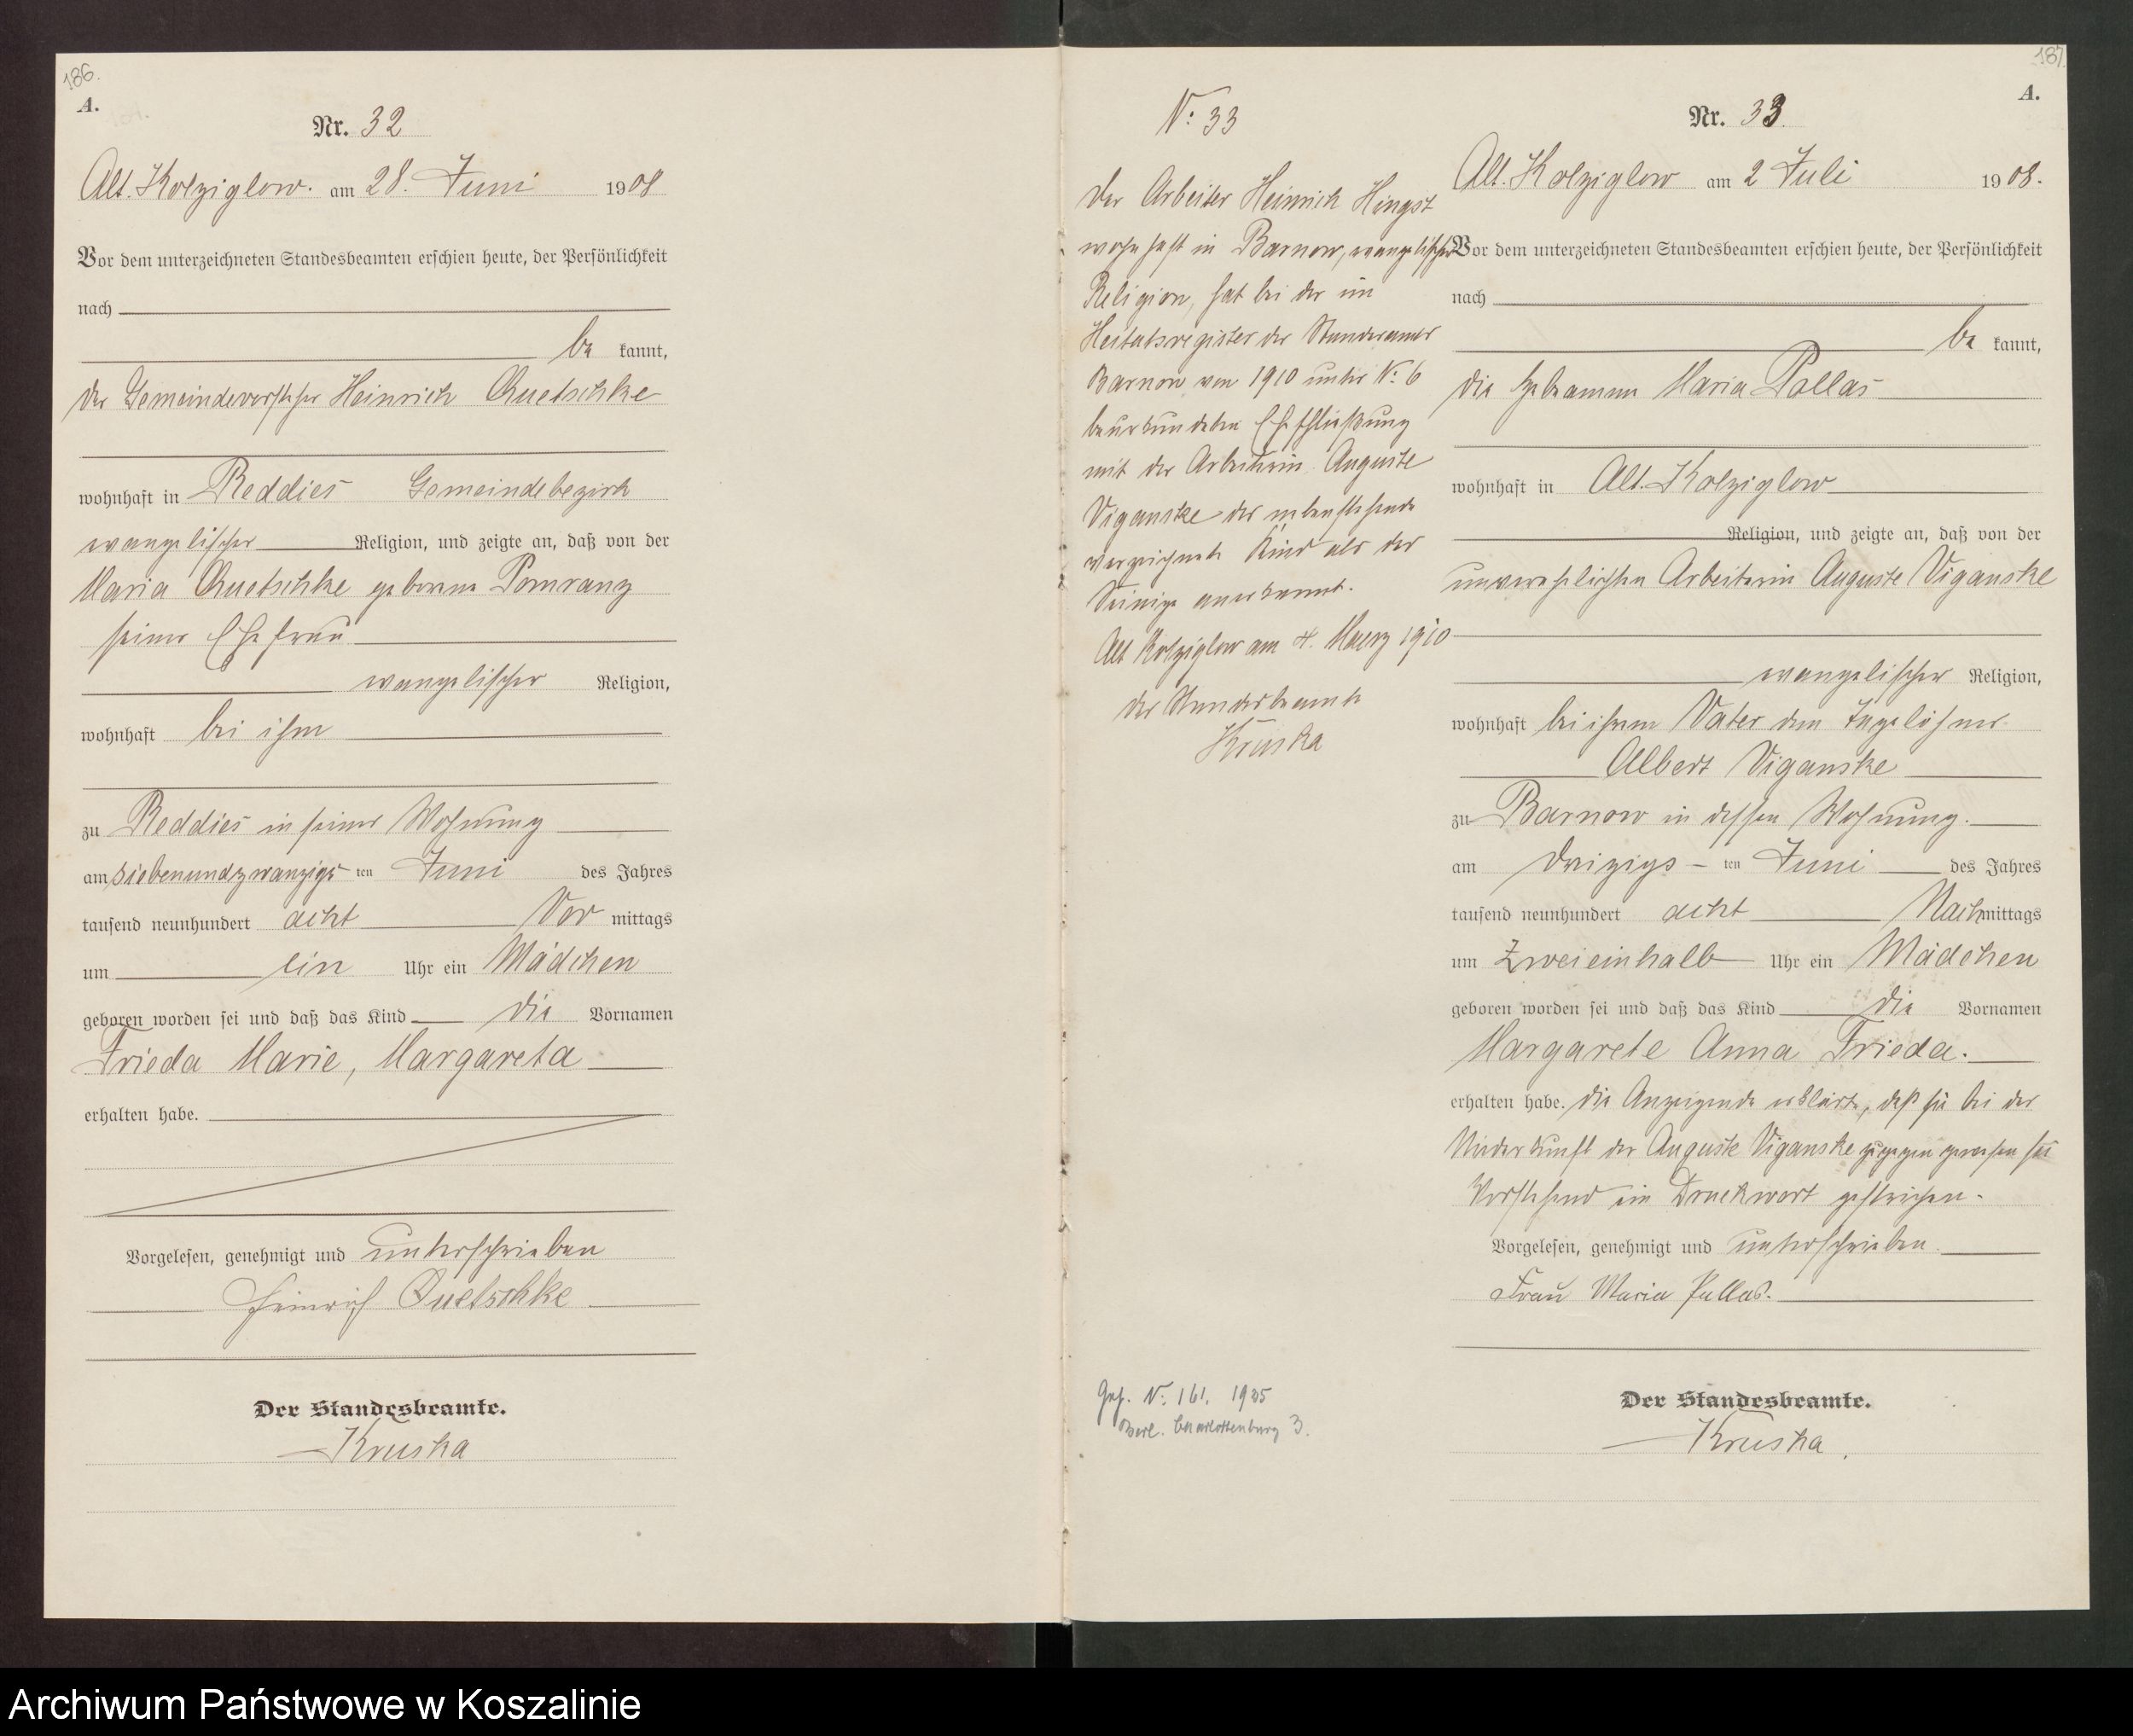 186.
A.
Nr. 32
Alt. Kolziglow. am 28. Juni 1908
Vor dem unterzeichneten Standesbeamten erschien heute, der Persönlichkeit
nach
be kannt,
der Gemeindevorsteher Heinrich Quetschke
wohnhaft in Reddies Gemeindebezirk
evangelischer Religion, und zeigte an, daß von der
Maria Quetschke geborene Pomranz
seiner Ehefrau
evangelischer Religion,
wohnhaft bei ihm
zu Reddies in seiner Wohnung
am siebenundzwanzigs ten Juni des Jahres
tausend neunhundert acht Vor mittags
um ein Uhr ein Mädchen
geboren worden sei und daß das Kind die Vornamen
Frieda Marie, Margareta
erhalten habe.
Vorgelesen, genehmigt und unterschrieben
Heinrich Quetschke
Der Standesbeamte.
Kruska
N: 33
Der Arbeiter Heinrich Hingst
wohnhaft in Barnow, evangelischer
Religion, hat bei der im
Heiratsregister des Standesamts
Barnow von 1910 unter N: 6
beurkundeten Eheschließung
mit der Arbeiterin Auguste
Viganske das nebenstehende
verzeichnete Kind als das
Seinige anerkannt.
Alt Kolziglow am 4. Maerz 1910
Der Standesbeamte
Kruska
N: 161. 1935
Berl. Charlottenburg 3.
187.
A.
Nr. 33
Alt. Kolziglow am 2 Juli 1908.
Vor dem unterzeichneten Standesbeamten erschien heute, der Persönlichkeit
nach
be kannt,
die Hebamme Maria Pallas
wohnhaft in Alt. Kolziglow
Religion, und zeigte an, daß von der
unverehelichten Arbeiterin Auguste Viganske
evangelischer Religion,
wohnhaft bei ihrem Vater dem Tagelöhner
Albert Viganske
zu Barnow in dessen Wohnung.
am dreizigs ten Juni des Jahres
tausend neunhundert acht Nachmittags
um Zweieinhalb Uhr ein Mädchen
geboren worden sei und daß das Kind die Vornamen
Margarete Anna Frieda.
erhalten habe. Die Anzeigende erklärte, daß sie bei der
Niederkunft der Auguste Viganske zugegen gewesen sei
Vorstehend ein Druckwort gestrichen.
Vorgelesen, genehmigt und unterschrieben.
Frau Maria Pallas.
Der Standesbeamte.
Kruska.
Archiwum Państwowe w Koszalinie